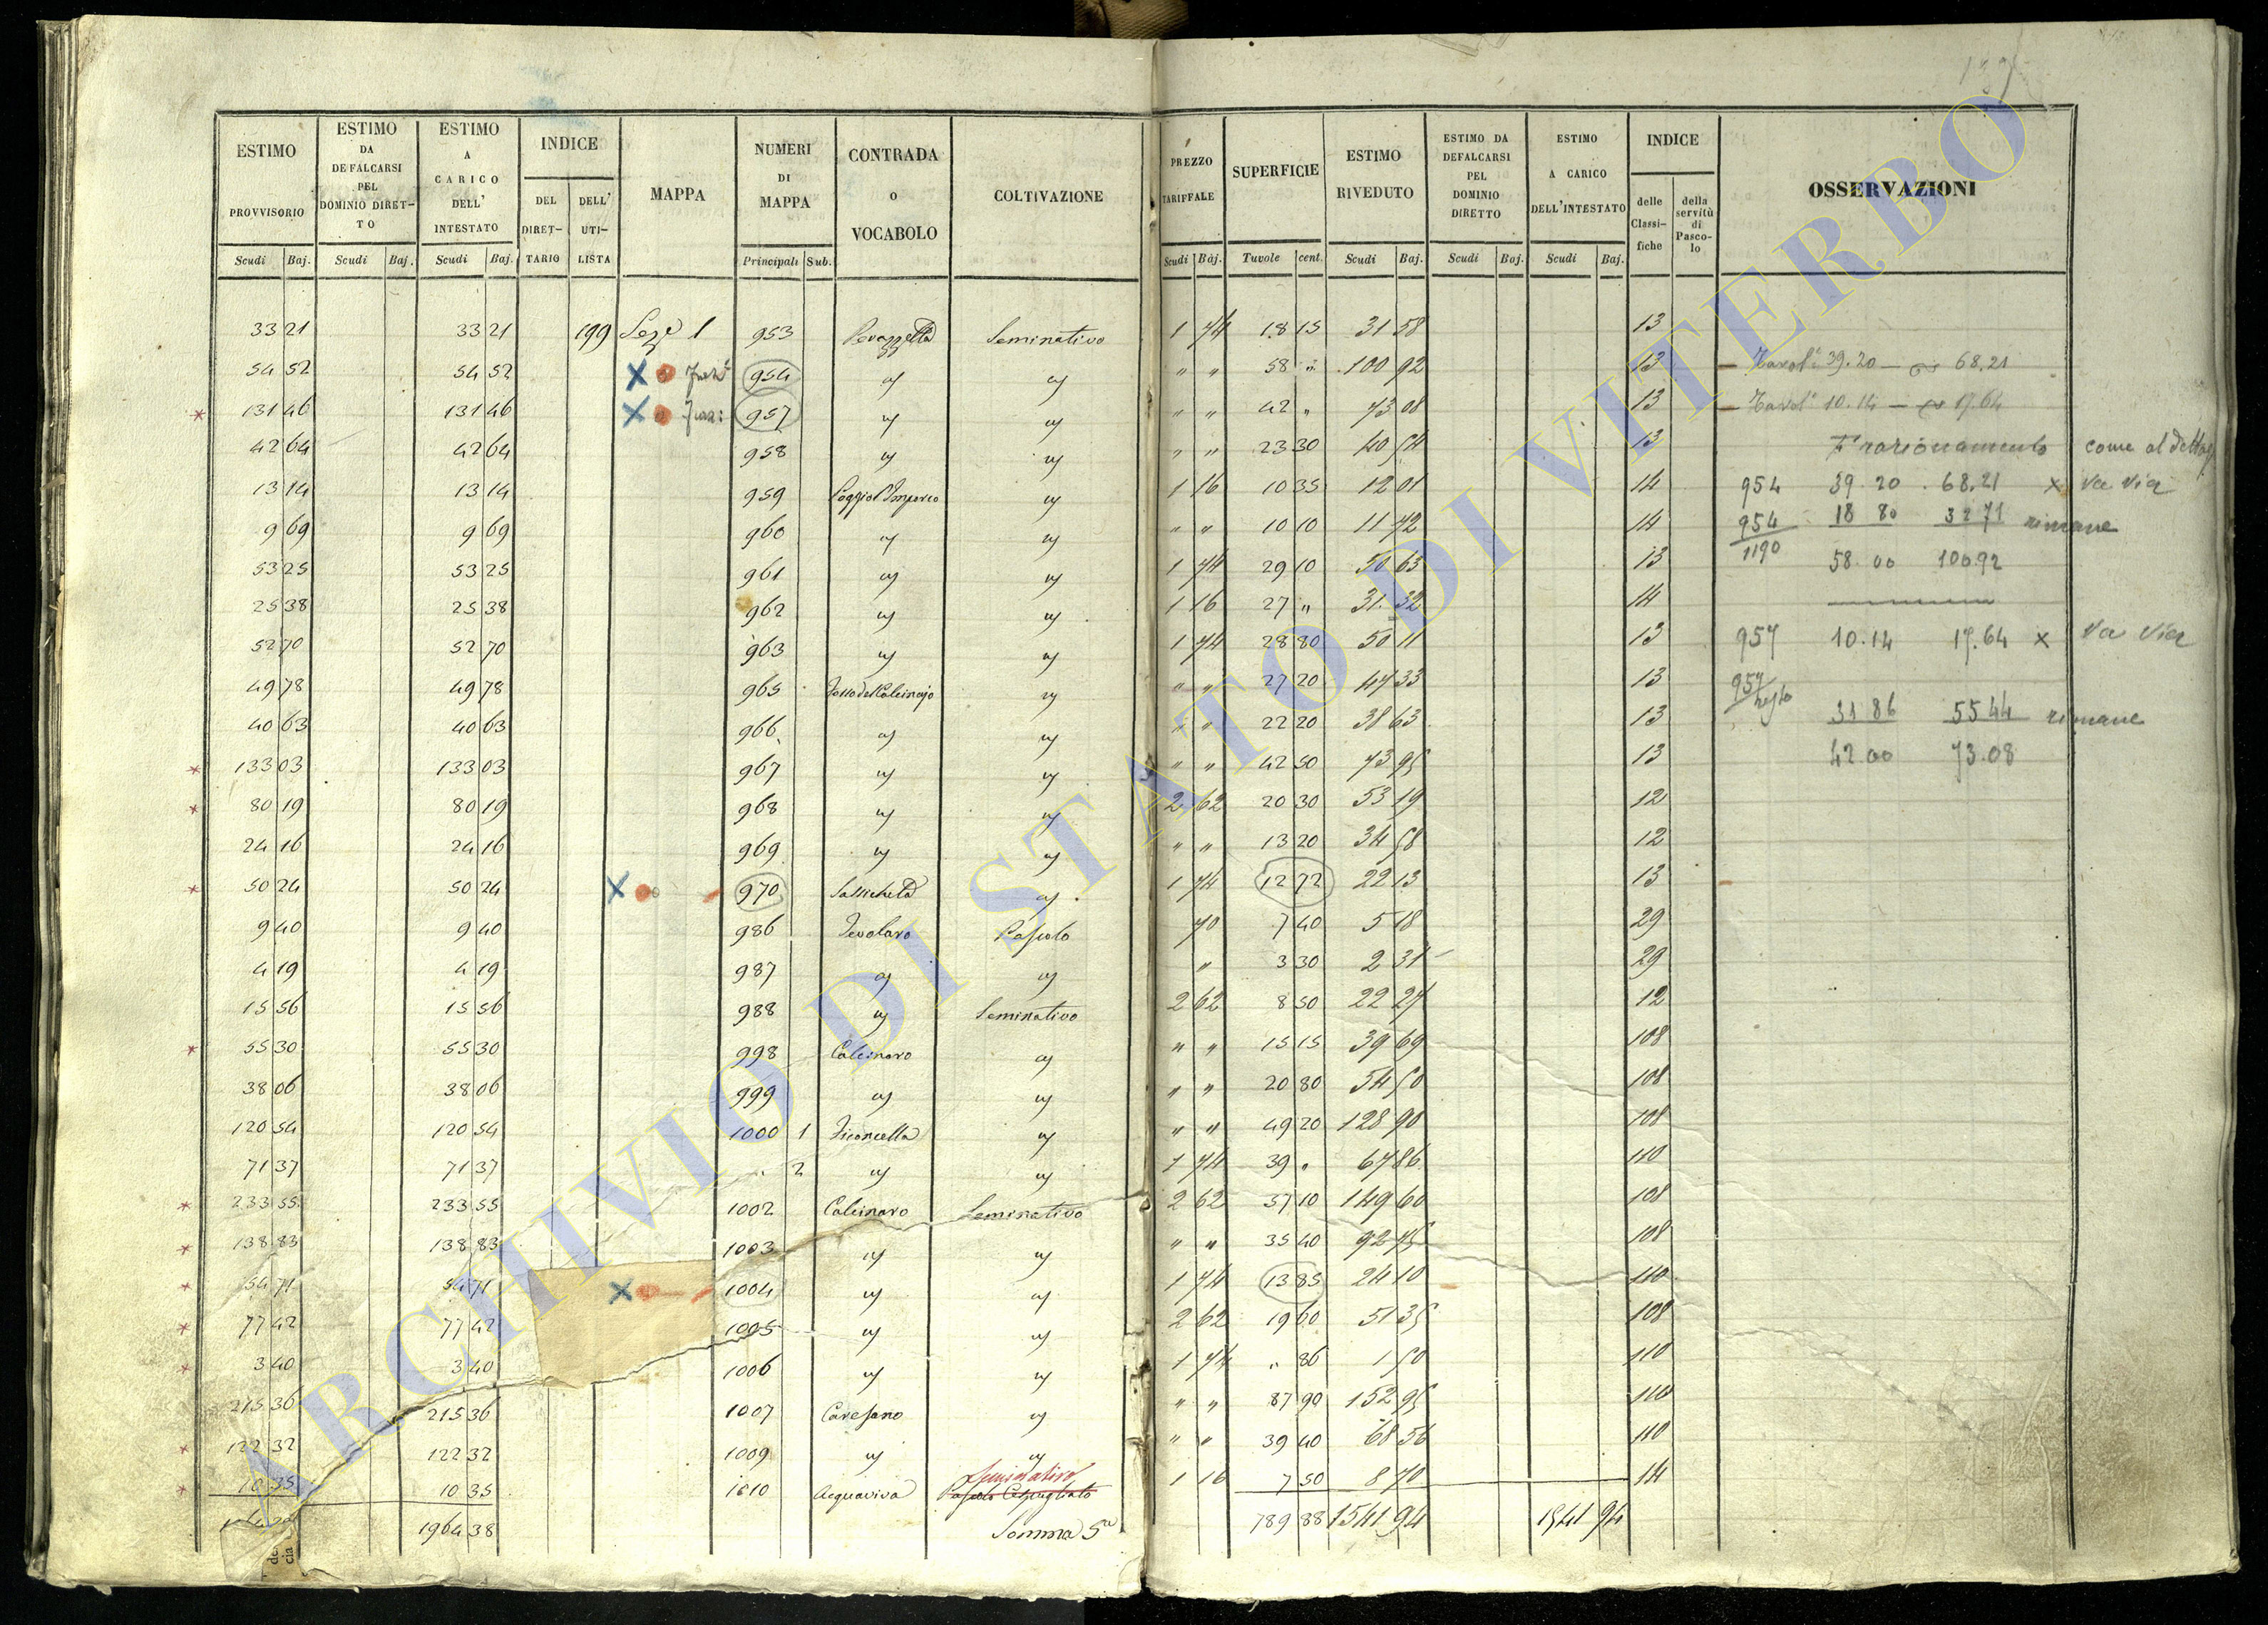 ESTIMO PROVVISORIO Scudi Baj.
ESTIMO DA DEFALCARSI PEL DOMINIO DIRETTO Scudi Baj.
ESTIMO A CARICO DELL' INTESTATO Scudi Baj.
INDICE DEL DIRETTARIO DELL' UTILISTA
MAPPA
NUMERI DI MAPPA Principali Sub.
CONTRADA o VOCABOLO
COLTIVAZIONE
PREZZO TARIFFALE Scudi Baj.
SUPERFICIE Tavole cent.
ESTIMO RIVEDUTO Scudi Baj.
ESTIMO DA DEFALCARSI PEL DOMINIO DIRETTO Scudi Baj.
ESTIMO A CARICO DELL'INTESTATO Scudi Baj.
INDICE delle Classifiche della servitù di Pascolo
OSSERVAZIONI
33 21 33 21 199 Sez. 1 953 Seminativo 1 74 18 15 31 58 13
54 52 54 52 954 " " " " 58 " 100 92 13 Tavol. 39.20 — 68.21
131 46 131 46 957 " " " " 42 " 73 08 13 Tavol. 10.14 — 17.64
42 64 42 64 958 " " " " 23 30 40 54 13 Frazionamento come al dettag
13 14 13 14 959 " 1 16 10 35 12 01 14 954 39.20 68.21 x va via
9 69 9 69 960 " " " " 10 10 11 72 14 954 18 80 32 71 rimane
53 25 53 25 961 " " 1 74 29 10 50 63 13 1190 58.00 100 92
25 38 25 38 962 " " 1 16 27 " 31 32 14
52 70 52 70 963 " " 1 74 28 80 50 11 13 957 10.14 17.64 x va via
49 78 49 78 965 Fosso del Calcinajo " " " 27 20 47 33 13 957 resto
40 63 40 63 966 " " " " 22 20 38 63 13 31 86 55 44 rimane
133 03 133 03 967 " " " " 42 50 73 95 13 42.00 73.08
80 19 80 19 968 " " 2 62 20 30 53 19 12
24 16 24 16 969 " " " " 13 20 34 58 12
50 24 50 24 970 " 1 74 12 72 22 13 13
9 40 9 40 986 Pascolo 70 7 40 5 18 29
4 19 4 19 987 " " " 3 30 2 31 29
15 56 15 56 988 " Seminativo 2 62 8 50 22 27 12
55 30 55 30 998 Calcinaro " " " 15 15 39 69 108
38 06 38 06 999 " " " " 20 80 54 50 108
120 54 120 54 1000 1 Ficoncella " " " 49 20 128 90 108
71 37 71 37 " 2 " " 1 74 39 " 67 86 110
233 55 233 55 1002 Calcinaro Seminativo 2 62 57 10 149 60 108
138 83 138 83 1003 " " " " 35 40 92 75 108
54 71 54 71 1004 " " 1 74 13 85 24 10 110
77 42 77 42 1005 " " 2 62 19 60 51 35 108
3 40 3 40 1006 " " 1 74 " 86 1 50 110
215 36 215 36 1007 " " " 87 90 152 95 110
122 32 122 32 1009 " " " " 39 40 68 56 110
10 35 10 35 1010 Acquaviva Seminativo Pascolo Cespugliato 1 16 7 50 8 70 14
1964 38 Somma 5a 789 88 1541 94 1541 94
ARCHIVIO DI STATO DI VITERBO